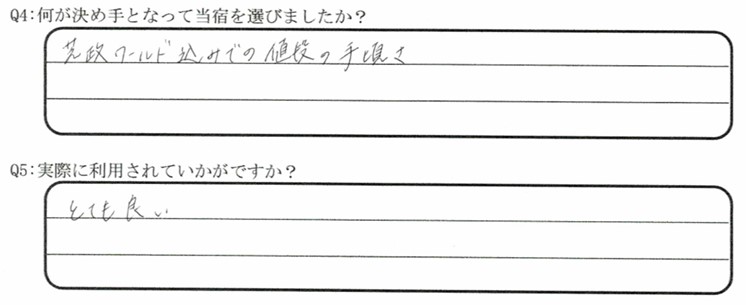 Q4:何が決め手となって当宿を選びましたか？
芝政ワールド込みでの値段の手頃さ
Q5:実際に利用されていかがですか？
とても良い